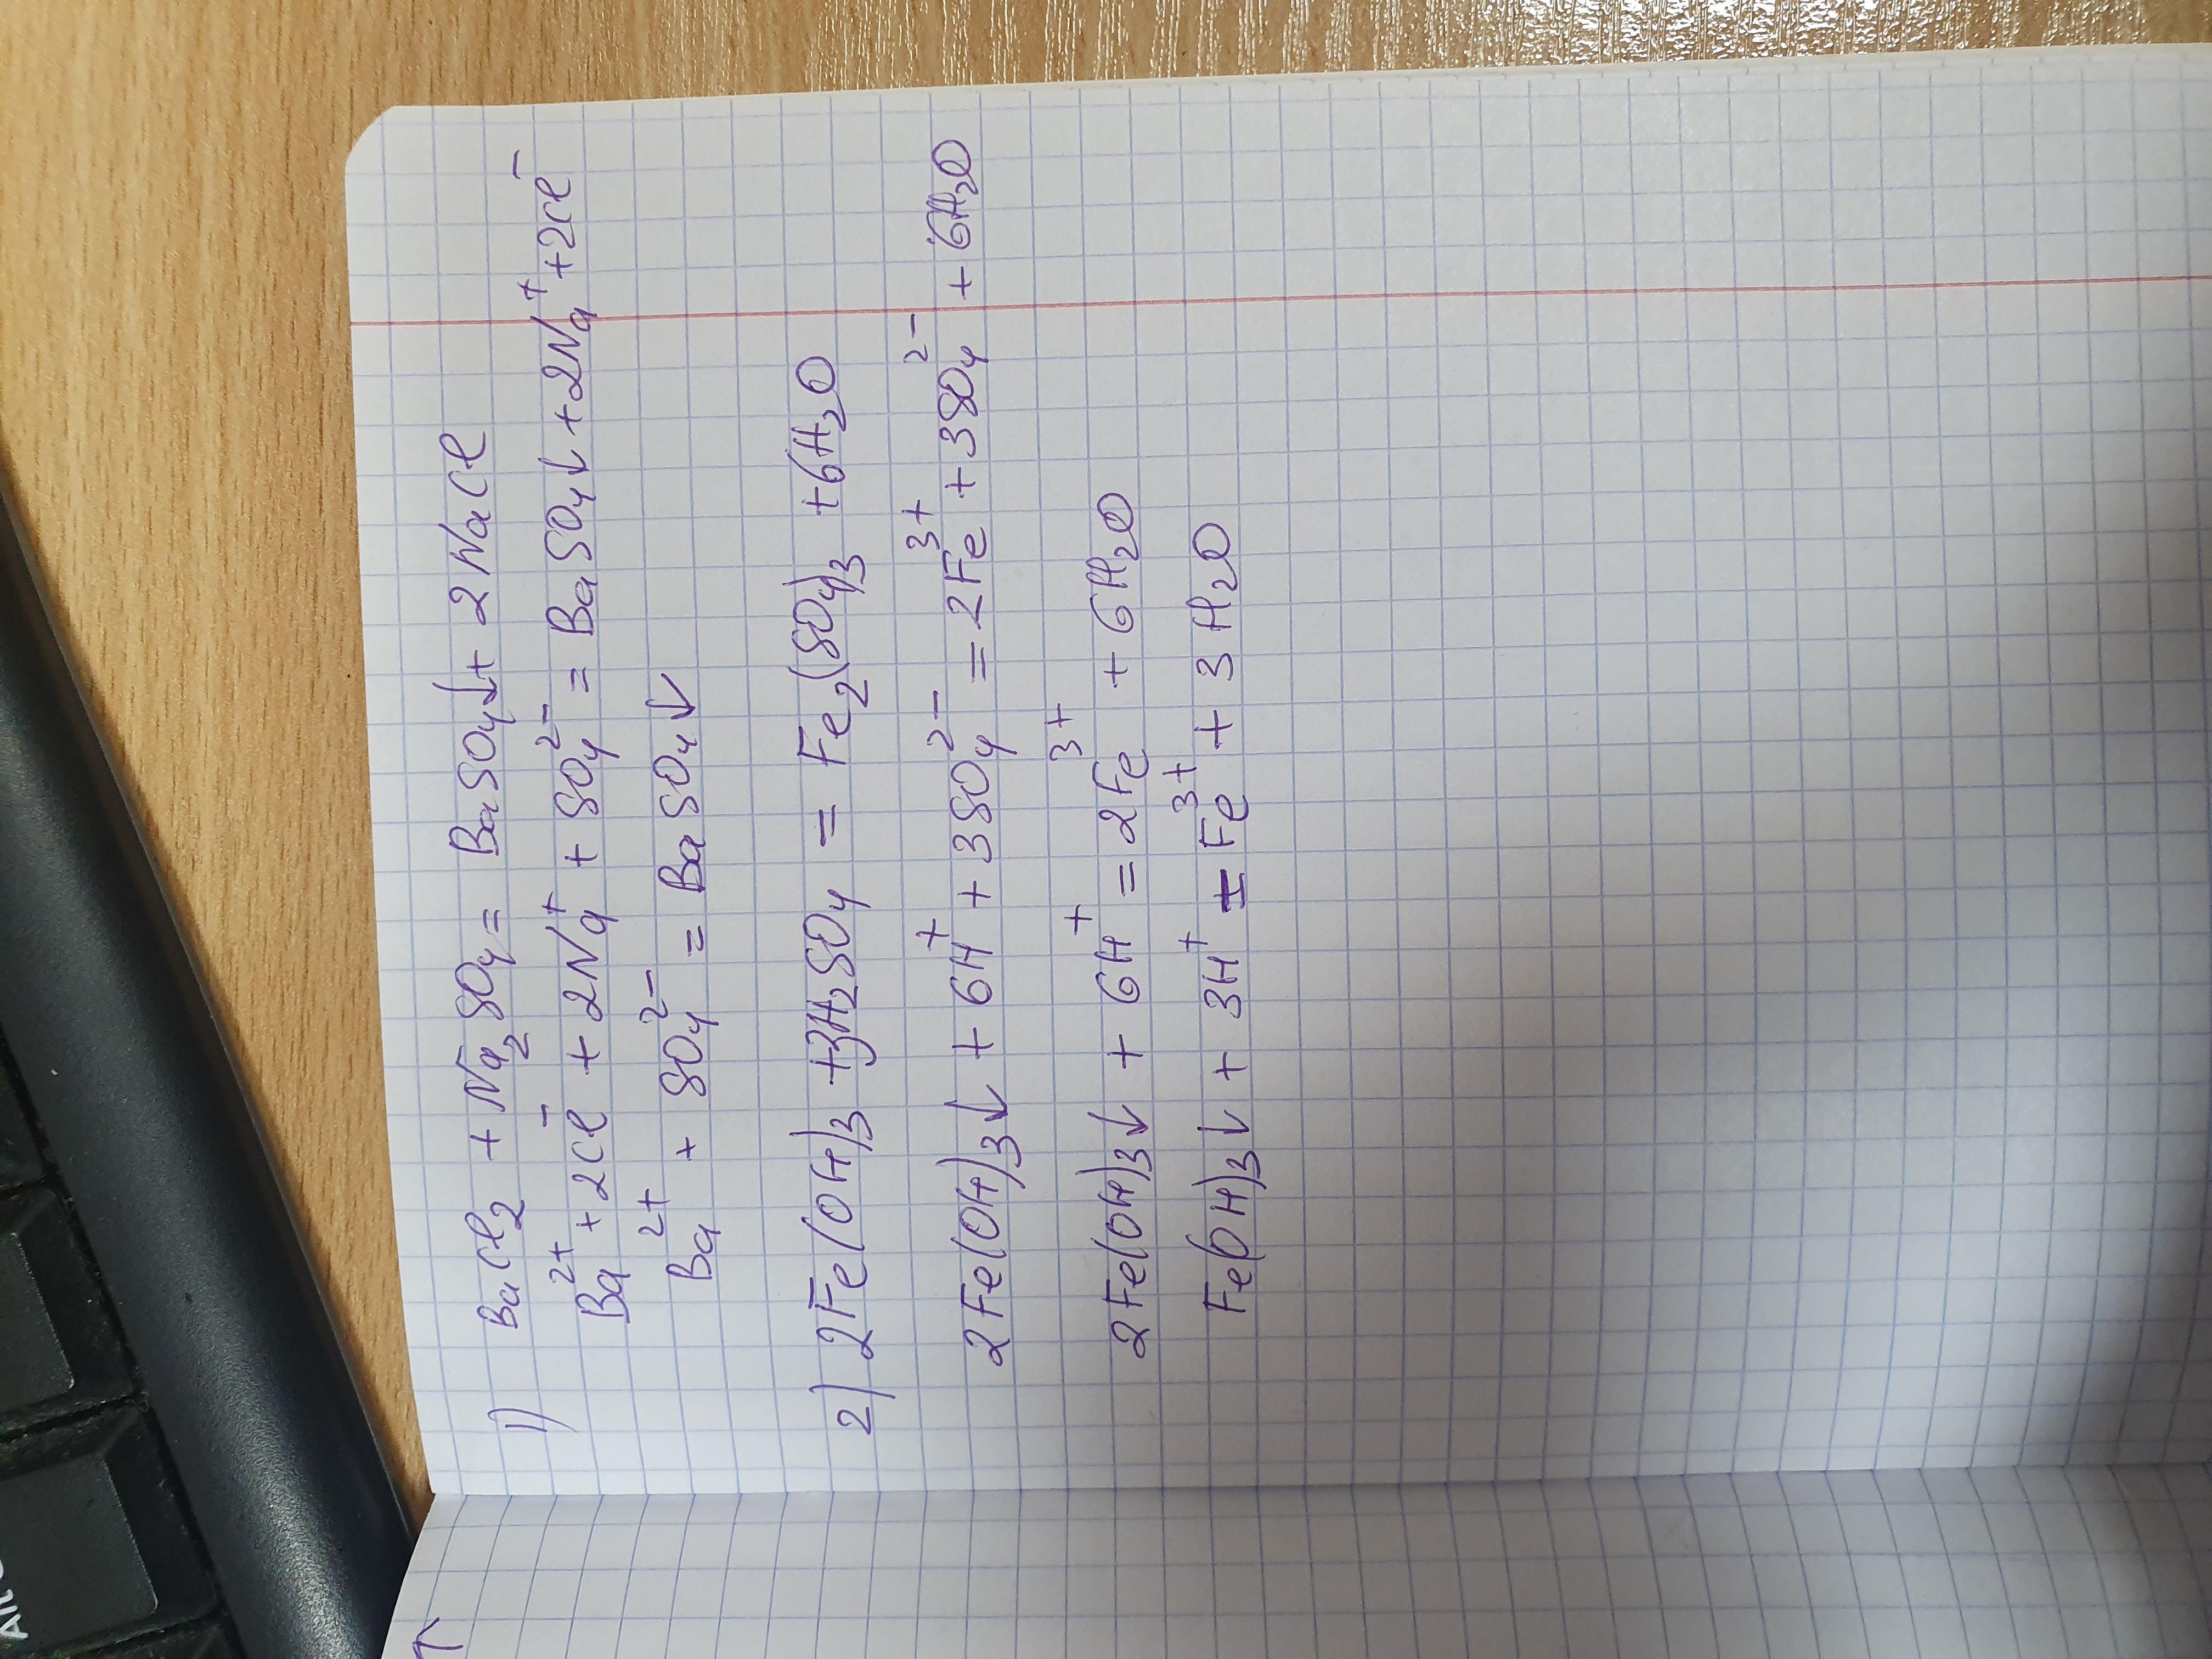 1) BaCl₂ + Na₂SO₄ = BaSO₄↓ + 2NaCl
Ba²⁺ + 2Cl⁻ + 2Na⁺ + SO₄²⁻ = BaSO₄↓ + 2Na⁺ + 2Cl⁻
Ba²⁺ + SO₄²⁻ = BaSO₄↓
2) 2Fe(OH)₃ + 3H₂SO₄ = Fe₂(SO₄)₃ + 6H₂O
2Fe(OH)₃↓ + 6H⁺ + 3SO₄²⁻ = 2Fe³⁺ + 3SO₄²⁻ + 6H₂O
2Fe(OH)₃↓ + 6H⁺ = 2Fe³⁺ + 6H₂O
Fe(OH)₃↓ + 3H⁺ = Fe³⁺ + 3H₂O